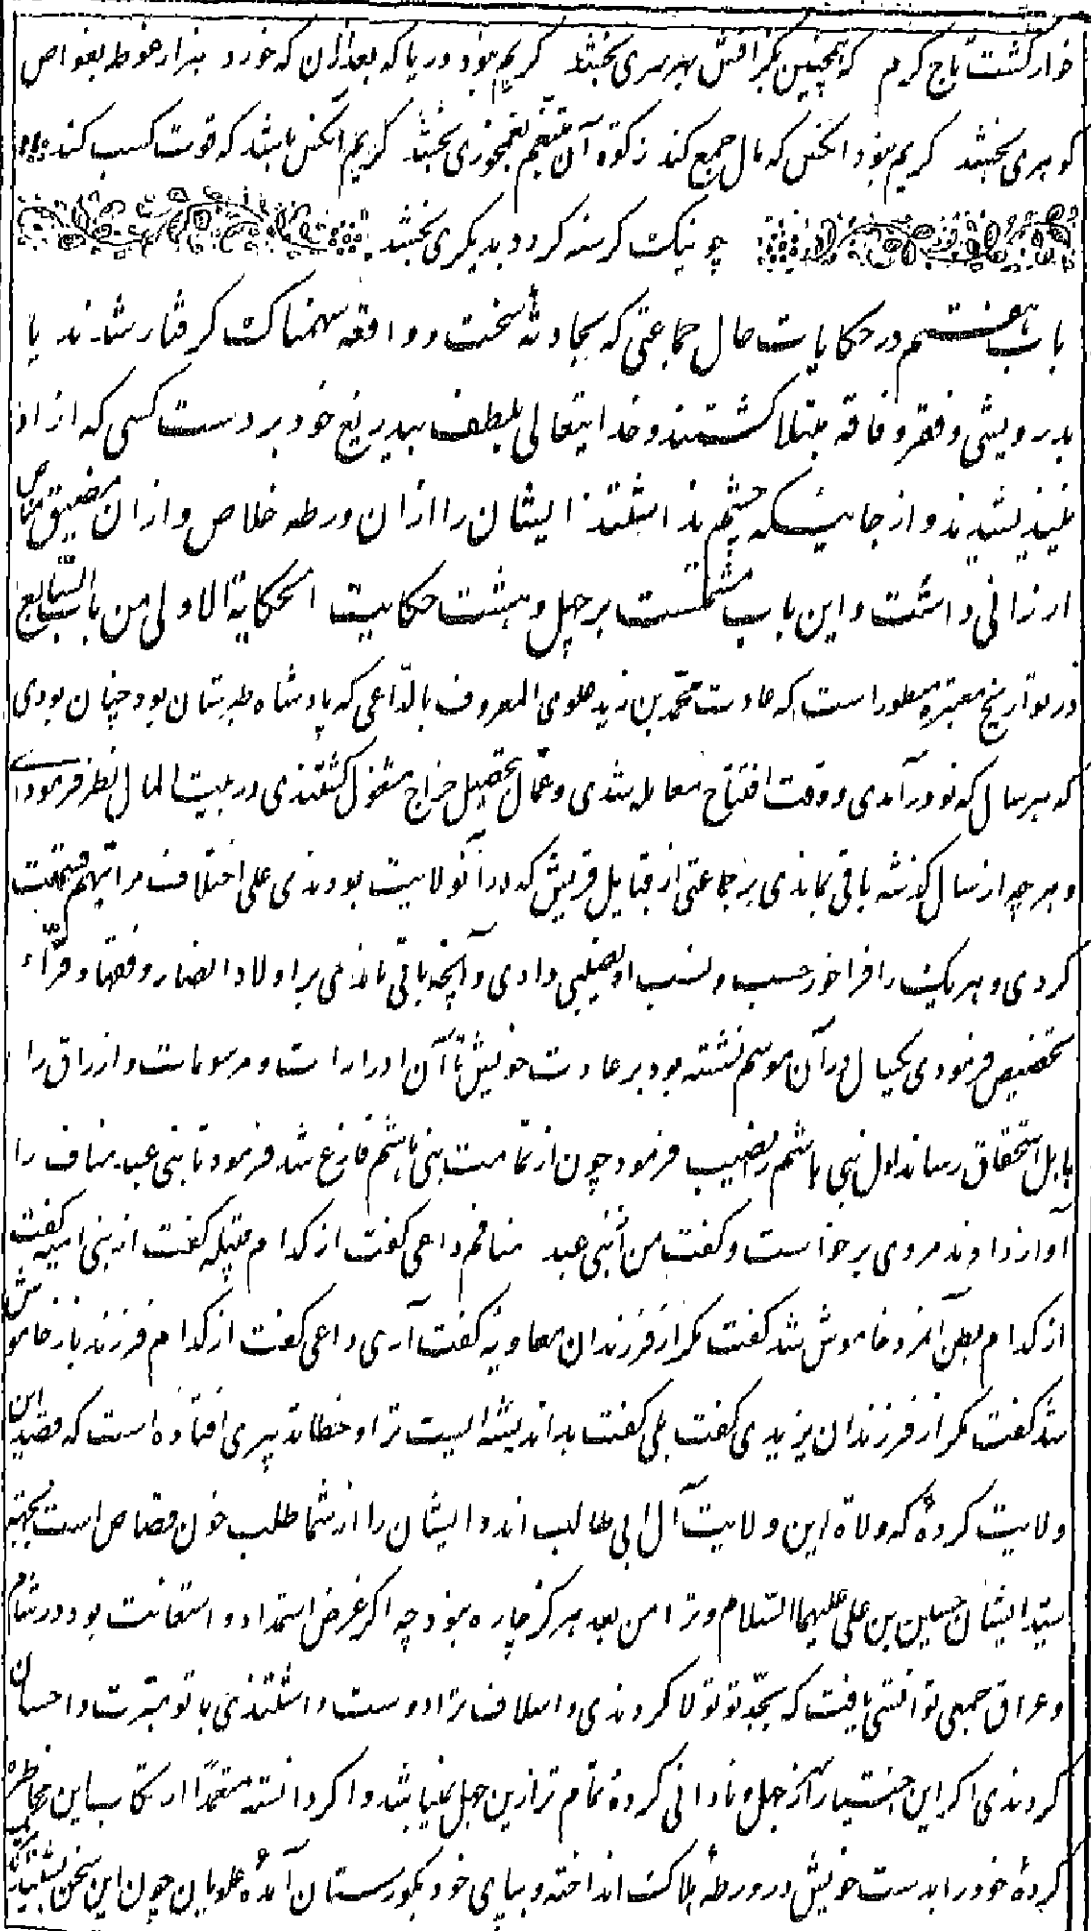 خوار گشت تاج کرم که همچنین بگرافش بهر سری بخشد کریم نبود دریا که بعد ازان که خورد هزار غوطه بغواص
گوهری بخشد کریم نبود آنکس که مال جمع کند زکوة آن متنعم بعجوزی بخشد کریم آنکس باشد که قوت کسب کند
چو نیک گرسنه گردد بدیگری بخشد
باب هفتم در حکایات حال جماعتی که بحادثهٔ سخت و واقعه سهمناک گرفتار شدند یا
بدرویشی و فقر و فاقه مبتلا گشتند و خدایتعالی بلطف بیدریغ خود بر دست کسی که از او
نیندیشیدند و از جائیکه چشم نداشتند ایشان را ازان ورطه خلاص و ازان مضیق مناص
ارزانی داشت و این باب مشتملست بر چهل و هشت حکایت الحکایة الاولی من باب السابع
در تواریخ معتبره مسطور است که عادت محمد بن زید علوی المعروف بالداعی که پادشاه طبرستان بود چنان بودی
که هر سال که نو درآمدی و وقت افتتاح معامله شدی و عمال بتحصیل خراج مشغول گشتندی در بیت المال نظر فرمودی
و هر چه از سال گذشته باقی بماندی بر جماعتی از قبایل قریش که در آنولایت بودندی علی اختلاف مراتبهم قسمت
کردی و هر یک را فراخور حسب و نسب او نصیبی دادی و آنچه باقی ماندی بر اولاد انصار و فقها و قرّاء
تخصیص فرمودی یکسال در آن موسم نشسته بود بر عادت خویش تا آن ادرارات و مرسومات و ارزاق را
باهل استحقاق رساند اول بنی هاشم را نصیب فرمود چون از تمامت بنی هاشم فارغ شد فرمود تا بنی عبد مناف را
آواز دادند مردی برخاست و گفت من از بنی عبد منافم داعی گفت از کدام قبیله گفت از بنی امیه گفت
از کدام بطن آنمرد خاموش شد گفت مگر از فرزندان معاویه گفت آری داعی گفت از کدام فرزند باز خاموش
شد گفت مگر از فرزندان یزیدی گفت بلی گفت بد اندیشه ایست ترا و خطا تدبیری افتاده است که قصد این
ولایت کردهٔ که ولاة این ولایت آل ابی طالب اند و ایشان را از شما طلب خون قصاص است بجهة
سید ایشان حسین بن علی علیهما السلام و ترا من بعد هرگز چاره نبود چه اگر غرض استمداد و استعانت بود در شام
و عراق جمعی توانستی یافت که بجد تو تولا کردندی و اسلاف ترا دوست داشتندی با تو مبرت و احسان
کردندی اگر این اختیار از جهل و نادانی کردهٔ تمام تر ازین جهل نباشد و اگر دانسته متعمداً ارتکاب این مخاطره
کردهٔ خود را بدست خویش در ورطهٔ هلاکت انداخته و بپای خود بگورستان آمدهٔ علویان چون این سخن بشنیدند